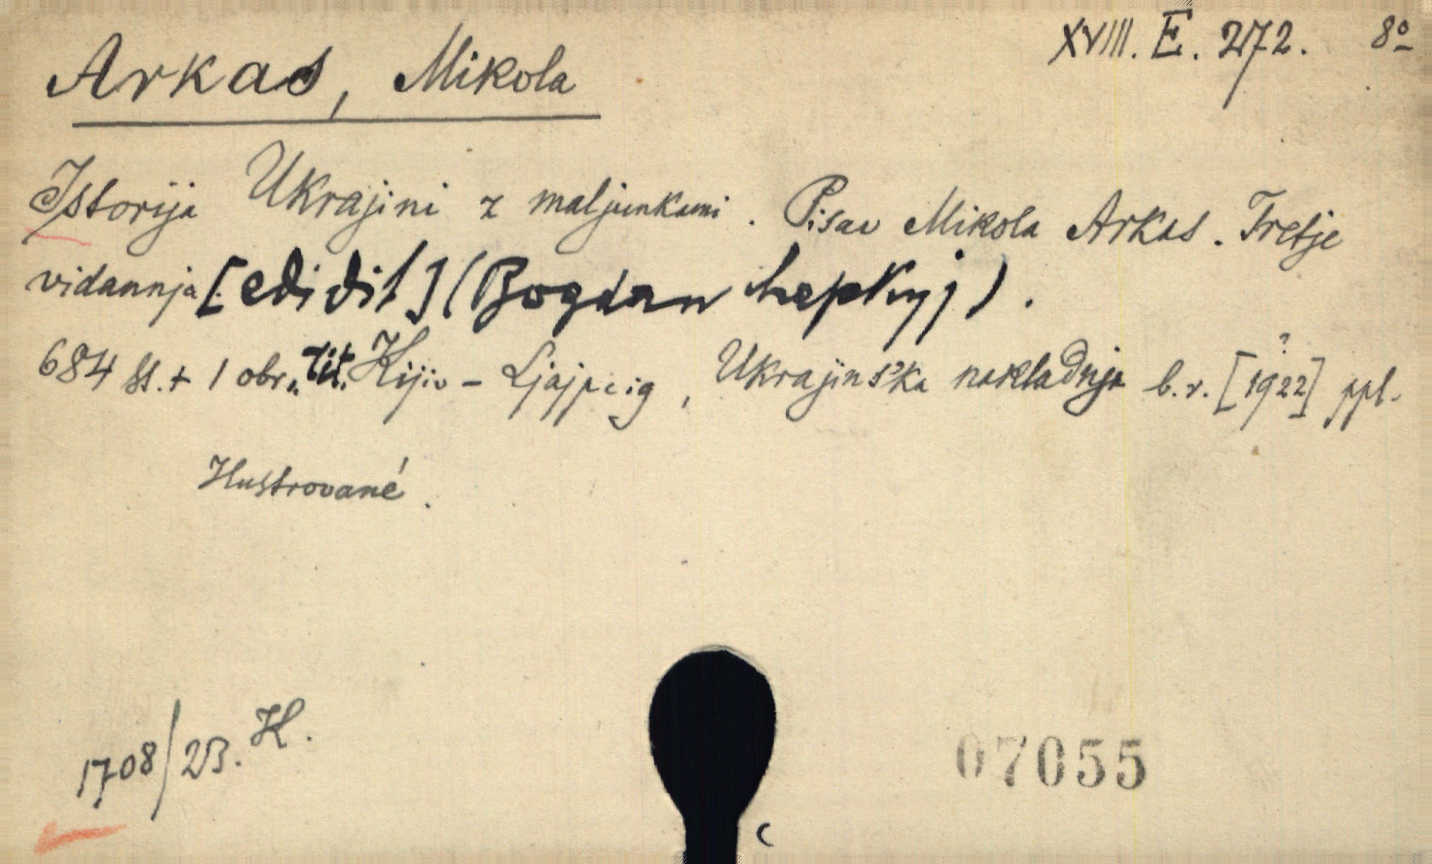 XVIII. E. 272. 8º
Arkas, Mikola
Istorija Ukrajini z maljunkami. Pisav Mikola Arkas. Tretje
vidannja [edidit] (Bogdan Lepkyj).
684 ss. + 1 obr. tit. Kijiv - Ljajpcig, Ukrajinśka nakladnja b. r. [1922] ppl.
?
Ilustrované.
1708/23. K.
07055